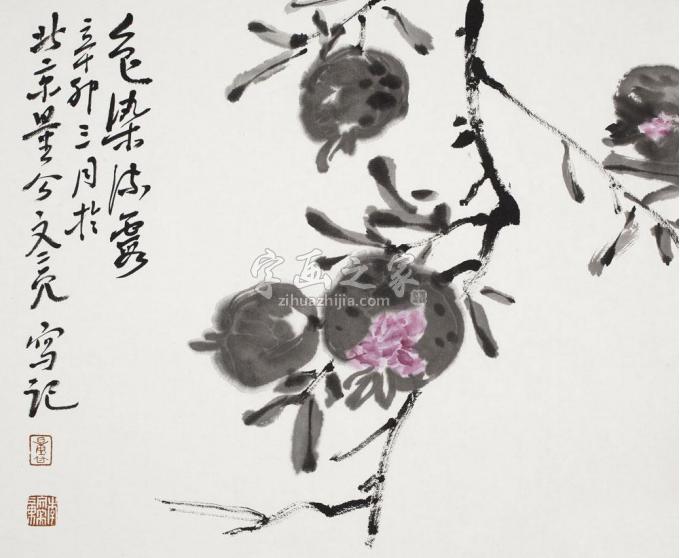 色染流霞
辛卯三月於
北京量写记
字画之家
zihuazhijia.com